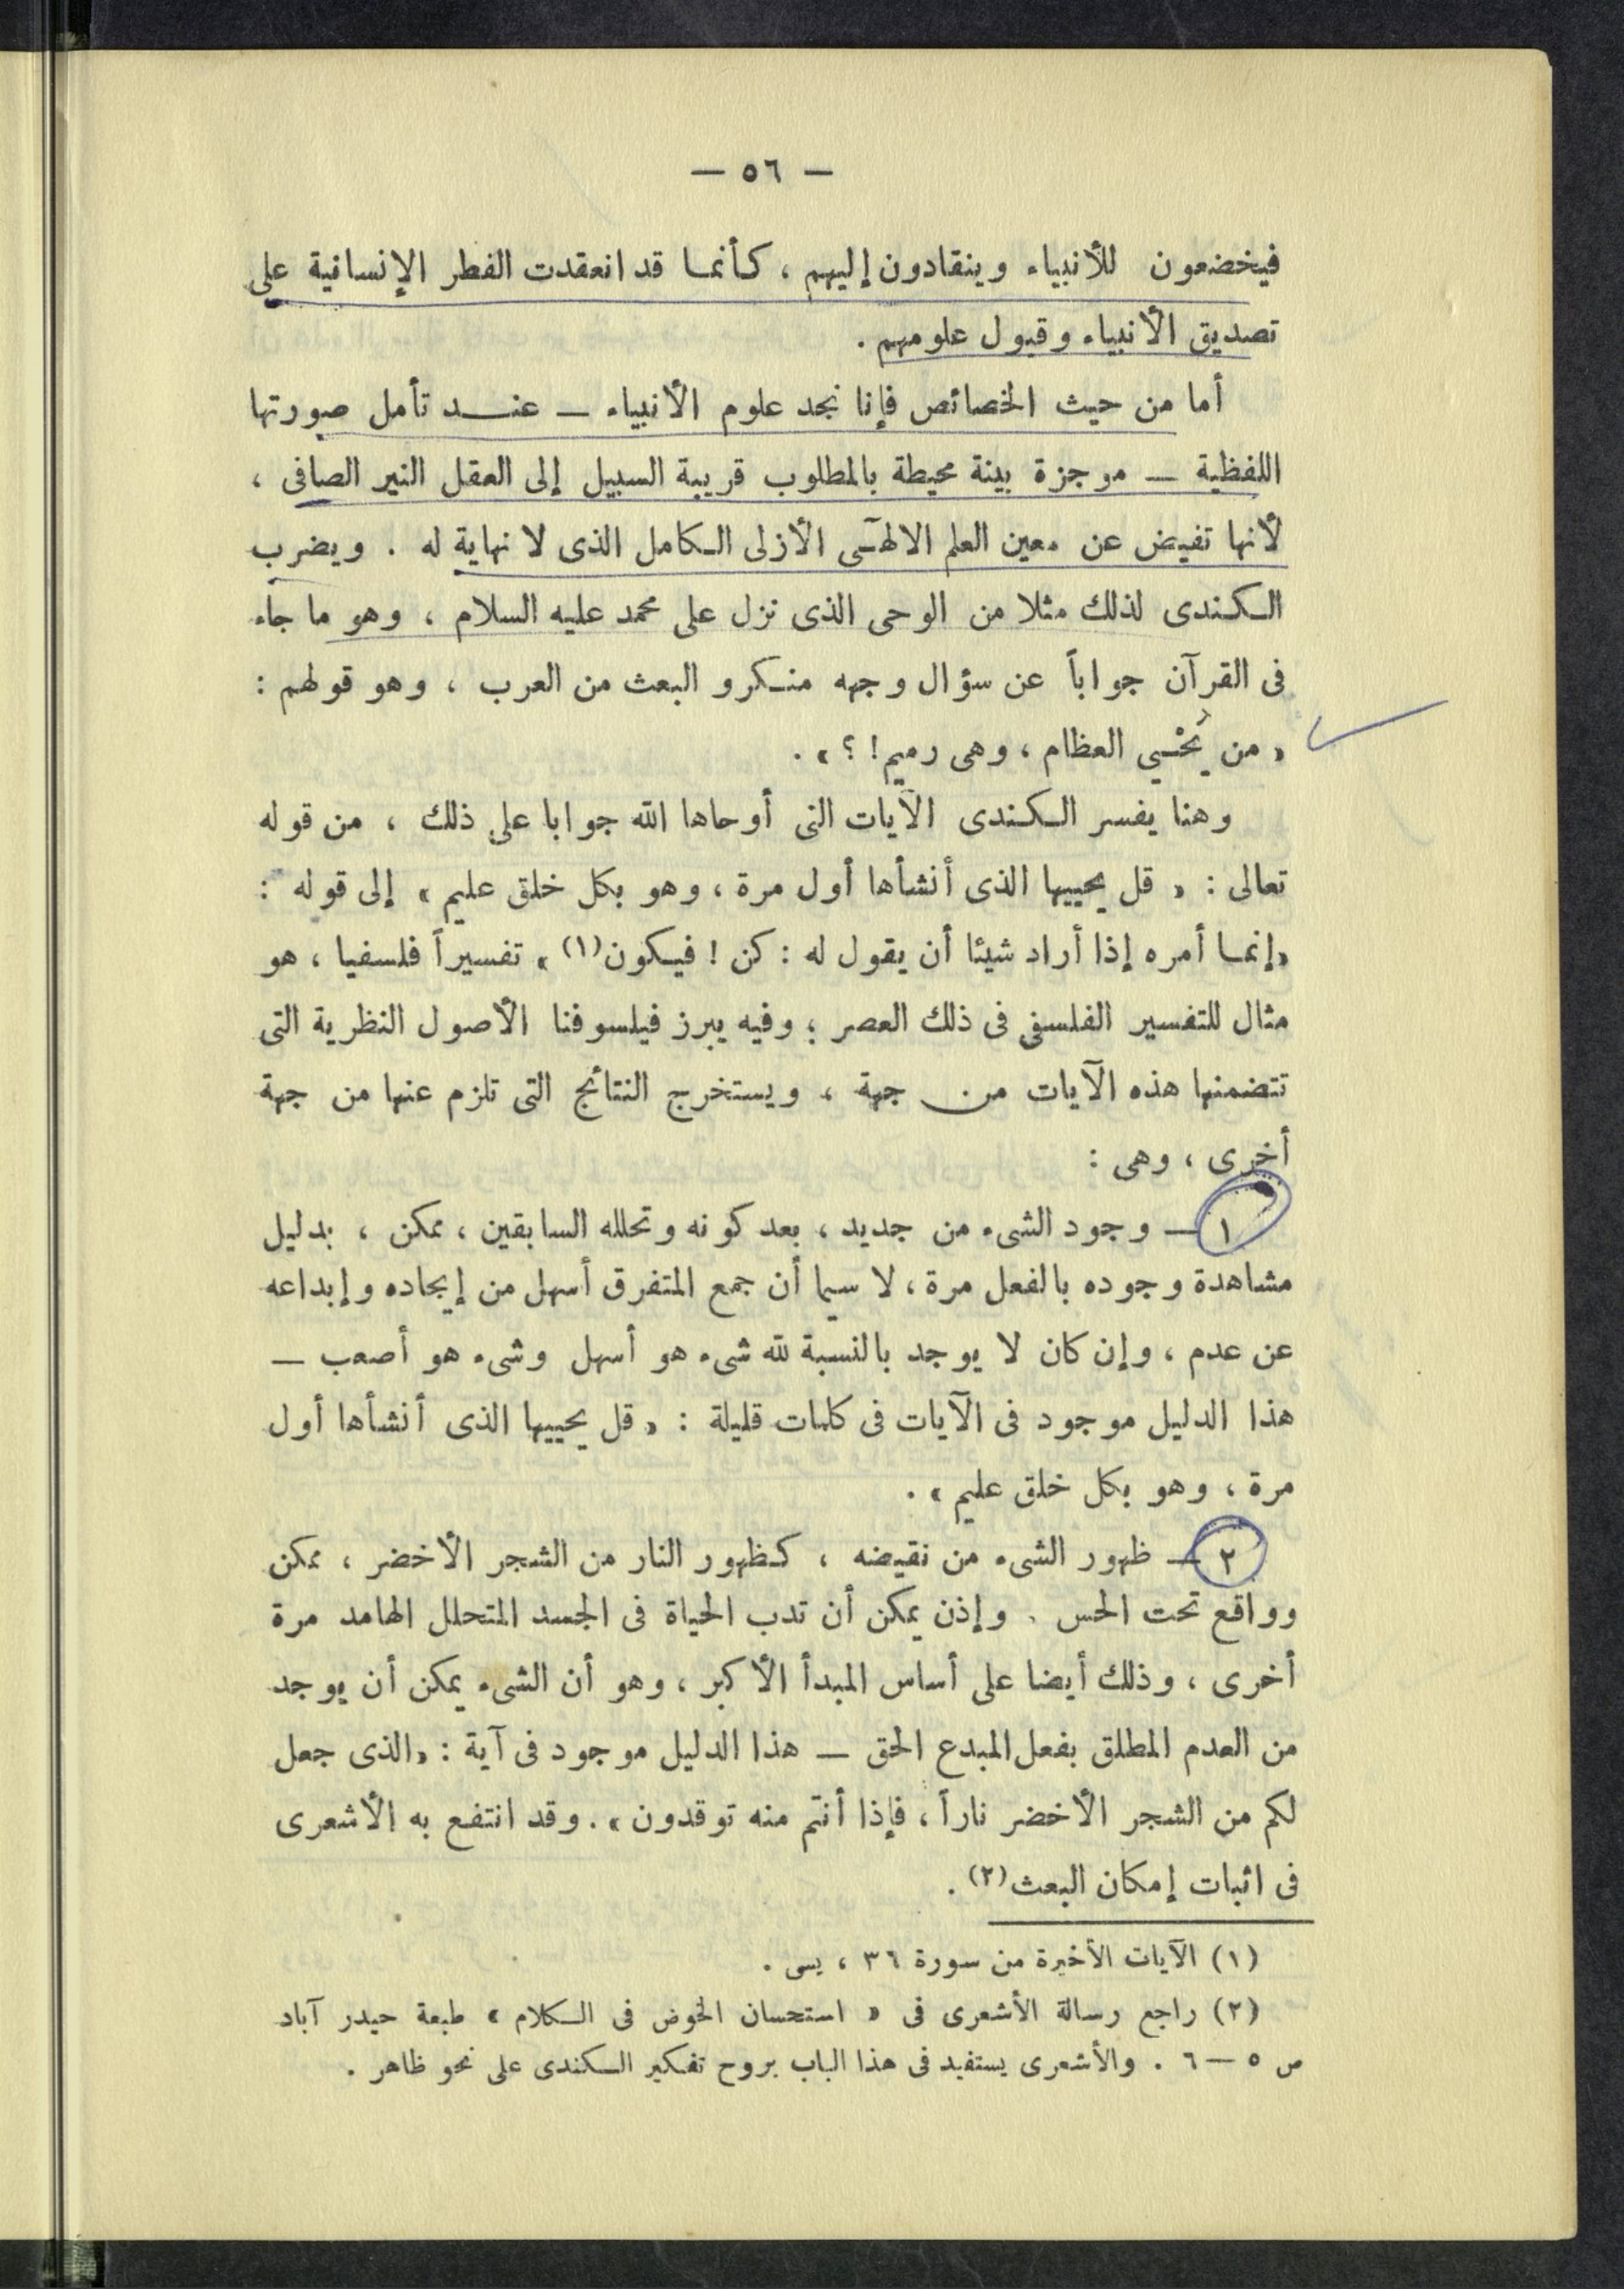 — ٥٦ —
فيخضعون للأنبياء وينقادون إليهم ، كأنما قد انعقدت الفطر الإنسانية على
تصديق الأنبياء وقبول علومهم .
أما من حيث الخصائص فإنا نجد علوم الأنبياء — عند تأمل صورتها
اللفظية — موجزة بينة محيطة بالمطلوب قريبة السبيل إلى العقل النير الصافى ،
لأنها تفيض عن معين العلم الالهٓى الأزلى الكامل الذى لا نهاية له . ويضرب
الكندى لذلك مثلا من الوحى الذى نزل على محمد عليه السلام ، وهو ما جاء
فى القرآن جواباً عن سؤال وجهه منكرو البعث من العرب ، وهو قولهم :
« من يُحْيِي العظام ، وهى رميم ! ؟ » .
وهنا يفسر الكندى الآيات التى أوحاها الله جوابا على ذلك ، من قوله
تعالى : « قل يحييها الذى أنشأها أول مرة ، وهو بكل خلق عليم » إلى قوله :
«إنما أمره إذا أراد شيئا أن يقول له : كن ! فيكون(١) » تفسيراً فلسفيا ، هو
مثال للتفسير الفلسفى فى ذلك العصر ؛ وفيه يبرز فيلسوفنا الأصول النظرية التى
تتضمنها هذه الآيات من جهة ، ويستخرج النتائج التى تلزم عنها من جهة
أخرى ، وهى :
١ — وجود الشىء من جديد ، بعد كونه وتحلله السابقين ، ممكن ، بدليل
مشاهدة وجوده بالفعل مرة ، لا سيما أن جمع المتفرق أسهل من إيجاده وإبداعه
عن عدم ، وإن كان لا يوجد بالنسبة لله شىء هو أسهل وشىء هو أصعب —
هذا الدليل موجود فى الآيات فى كلمات قليلة : « قل يحييها الذى أنشأها أول
مرة ، وهو بكل خلق عليم » .
٢ — ظهور الشىء من نقيضه ، كظهور النار من الشجر الأخضر ، ممكن
وواقع تحت الحس . وإذن يمكن أن تدب الحياة فى الجسد المتحلل الهامد مرة
أخرى ، وذلك أيضا على أساس المبدأ الأكبر ، وهو أن الشىء يمكن أن يوجد
من العدم المطلق بفعل المبدع الحق — هذا الدليل موجود فى آية : «الذى جعل
لكم من الشجر الأخضر ناراً ، فإذا أنتم منه توقدون » . وقد انتفع به الأشعرى
فى اثبات إمكان البعث(٢) .
(١) الآيات الأخيرة من سورة ٣٦ ، يسى .
(٢) راجع رسالة الأشعرى فى « استحسان الخوض فى الكلام » طبعة حيدر آباد
ص ٥ — ٦ . والأشعرى يستفيد فى هذا الباب بروح تفكير الكندى على نحو ظاهر .